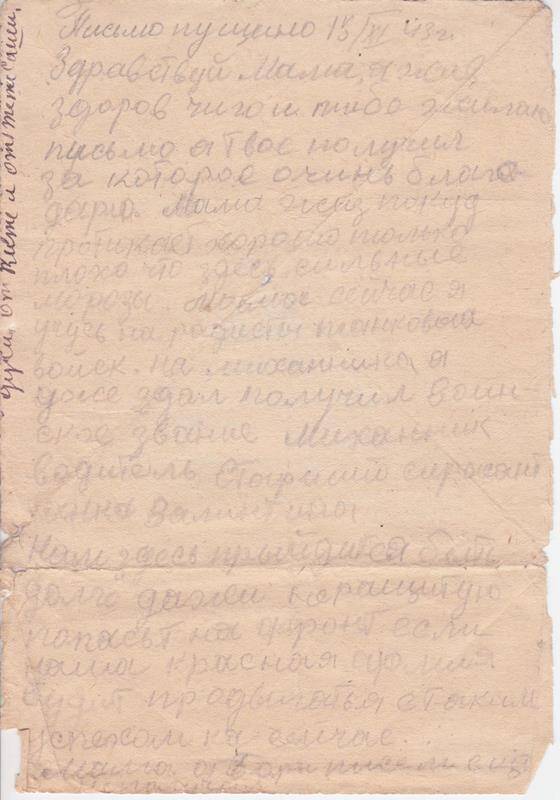 Письмо пущино 15/XI 43 г.
Здравствуй Мама, я жив
здоров чиго и тибе желаю
письмо я твое получил
за которое очинь благо-
дарю. Мама жизь покуд
протикает хорошо только
плохо что здесь сильные
морозы. Мама сейчас я
учусь на радиста танковых
войск. на миханника я
уже здал получил воин-
ское звание Миханник
водитель Старший сержант
Нам здесь прийдится быть
долго даже и
попасьт на фронт если
наша красная армия
будит продвигатья с таким
успехом как сейчас.
Мама я писем ещё